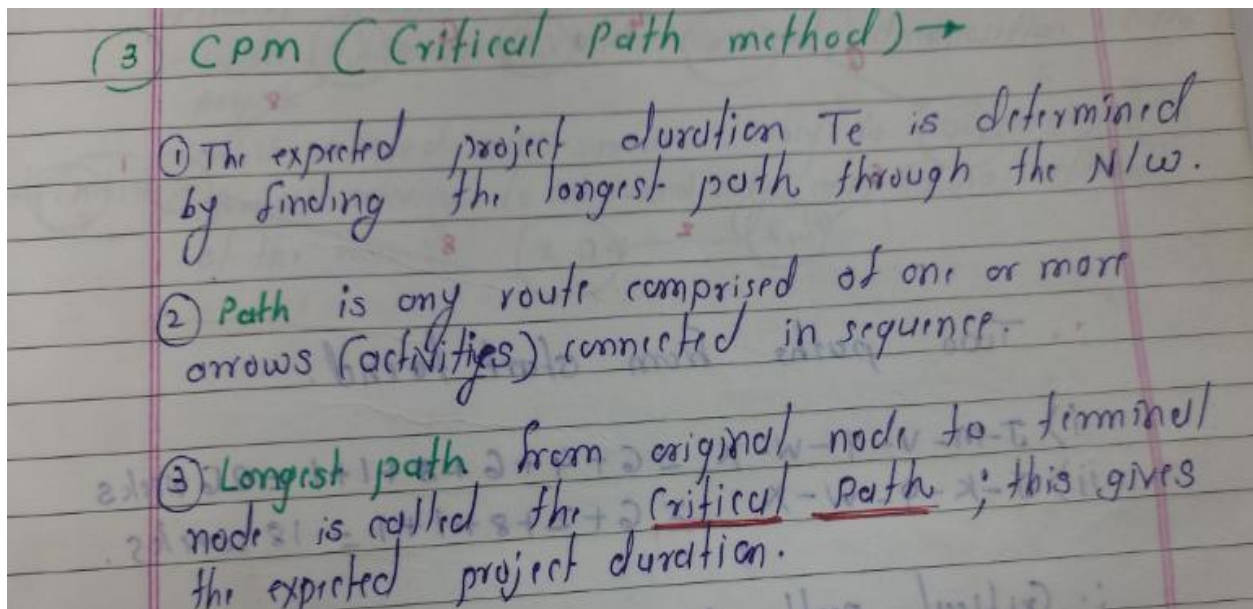 ③ CPM (Critical Path method) →
① The expected project duration Te is determined
by finding the longest path through the N/W.
② Path is any route comprised of one or more
arrows (activities) connected in sequence.
③ Longest path from original node to terminal
node is called the Critical Path ; this gives
the expected project duration.